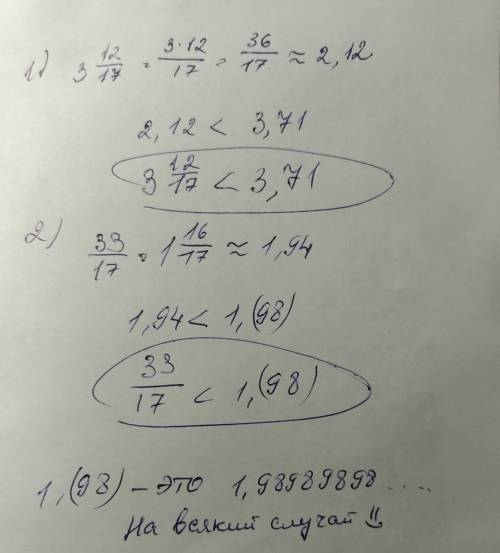 1) 3 12/17 = 3·12/17 = 36/17 ≈ 2,12
2,12 < 3,71
3 12/17 < 3,71
2) 33/17 = 1 16/17 ≈ 1,94
1,94 < 1,(98)
33/17 < 1,(98)
1,(98) – это 1,98989898....
На всякий случай